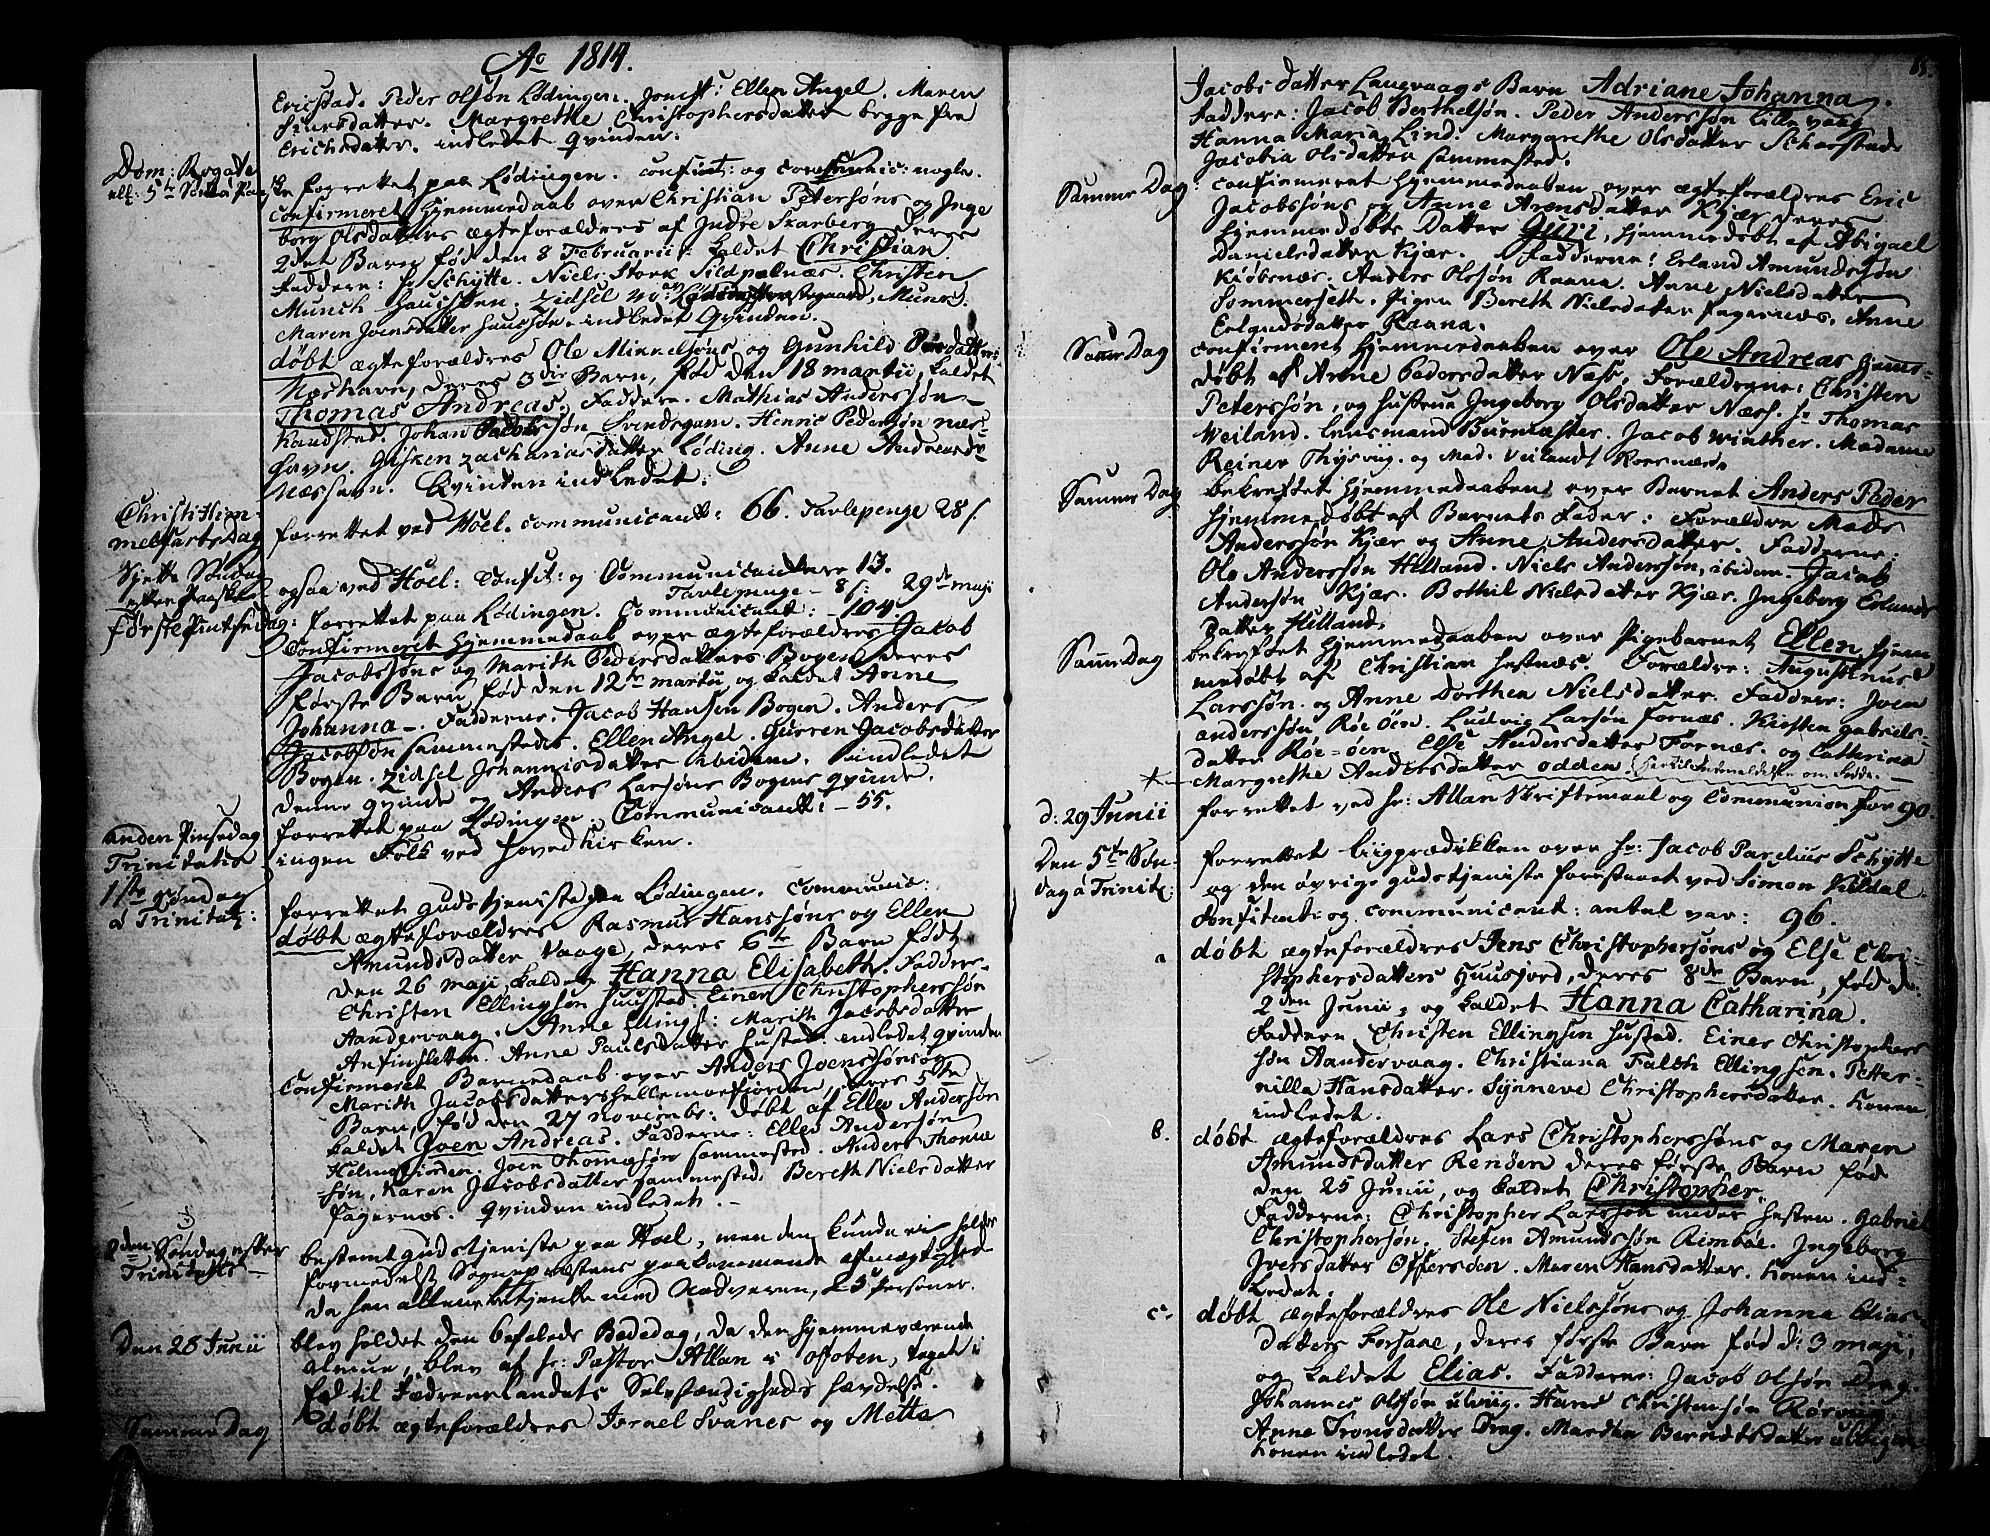 Ao 1814.
Ericstad. Peder Olsøn Lødingen. Jomf: Ellen Angel. Maren
Siursdatter. Margrethe Christophersdatter begge fra
Erichsdatter. indledet Qvinden.
Dom: Rogate
ell: 5te Sønd: e Paaske forrettet paa Lødingen. confit: og communic: nogle.
confirmeret Hjemmedaab over Christian Petersøns og Inge
borg Olsdatters ægteforældres af Indre Skarberg deres
2det Barn fød den 8 Februarii kaldet Christian.
Faddere: hr Schytte. Niels Stork Sildpolnæs. Christen
Munch. Zidsel
Maren Joensdatter. indledet Qvinden.
døbt ægteforældres Ole Mikkelsøns og Gunhild Persdatters
Næshavn, deres 3die Barn, fød den 18 martii, kaldet
Thomas Andreas. Faddere. Mathias Anderssøn
Kandstad. Johan Jacobsøn Svendsgam. Henric Pedersøn næs-
havn. Gisken Zachariasdatter Løding. Anne Andreasdr
Næshavn. Qvinden indledet.
Christi Him-
melfartsDag forrettet ved Hoel. communicant: 66. Tavlepenge 28 s.
Sjette Søndag
efter Paaske ogsaa ved Hoel: Confit: og Communicantere 13.
Tavlepenge - 8 s: 29de maji
første Pintsedag: forrettet paa Lødingen. Communicant: - 104.
Confirmeret Hjemmedaab over ægteforældres Jakob
Jacobssøns og Marith Pedersdatters Bogen deres
første Barn fød den 12te martii og kaldet Anne
Johanna -. Fadderne. Jacob Hansen Bogen. Anders
Jacobsøn sammesteds. Ellen Angel. Gurren Jacobsdatter
Bogen. Zidsel Johannisdatter ibidem. indledet
denne qvinde og Anders Larsøns Bogens qvinde.
anden Pinsedag forrettet paa Lødingen. Communicant: - 55.
Trinitatis ingen Folk ved hovedkirken.
1ste søndag
à Trinitat: forrettet gudstjeniste paa Lødingen. communic:
døbt ægteforældres Rasmus Hanssøns og Ellen
Amundsdatter Vaage, deres 6te Barn født
den 26 maji, kaldet Hanna Elisabeth. Faddere-
Christen Ellingsøn Huustad. Einer Christophersøn
Aandervaag. Anne Ellings: Marith Jacobsdatter
Anfinsletten. Anne Paulsdatter Hustad. indledet qvinden
Confirmeret Barnedaab over Anders Joenssøns og
Marith Jacobsdatters Hellemosfiorden, deres 5te
Barn, fød den 27 novembr: døbt af Ellev Andersøn
kaldet Joen Andreas. Fadderne: Ellev Andersøn
Helmosfiorden. Joen Thomæsøn sammested. Anders Thomæ
søn. Karen Jacobsdatter sammested. Bereth Nielsdatter
Fagernæs. qvinden indledet. -
2den Søndag efter
Trinitatis - bestemt gudstjeniste paa Hoel, men den kunde ei holdes
formedelst Sognepræstens paakommende afmægtighed
da han allene betjente med Nadveren, 25 personer.
Den 28 Junii blev holdet den befalede Bededag, da den hjemmeværende
Almue, blev af hr: Pastor Allan i Ofoten, taget i
Eed til Fædrenelandets Selvstændigheds hævdelse.
Samme Dag døbt ægteforældres Israel Svanes og Metta
85.
Jacobsdatter Langvaags Barn Adriane Johanna.
Faddere: Jacob Berthelsøn. Peder Anderssøn Lillevaag
Hanna Maria Lind. Margarethe Olsdatter Scharstad.
Jacobia Olsdatter sammested.
Samme Dag: confirmeret Hjemmedaaben over ægteforældres Eric
Jacobssøns og Anne Arensdatter Kjær deres
hjemmedøbte Datter Guri, hjemmedøbt af Abigael
Danielsdatter Kjær. Fadderne: Erland Amundssøn
Kiøbsnæs. Anders Olssøn Raana. Anne Nielsdatter
Sommerseth. Pigen Bereth Nielsdatter Fagernæs, Anne
Erlandsdatter Raana.
Samme Dag confirmeret Hjemmedaaben over Ole Andreas hjemme-
døbt af Arne Pedersdatter Næss. Forældrene: Christen
Peterssøn, og hustrue Ingeborg Olsdatter Næss. hr Thomas
Veiland. Lensmand Burmester. Jacob Winther. Madame
Reiner Thysvag. og Mad. Veilandt Korsnæs.
Samme Dag bekreftet Hjemmedaaben over Barnet Anders Peder
hjemmedøbt af Barnets Fader: Forældre Mads
Anderssøn Kjær og Anne Andersdatter. Fadderne:
Ole Anderssøn Hilland. Niels Anderssøn, ibidem. Jacob
Andersøn Kjær. Bothil Nielsdatter Kjær. Ingeborg Erlands
datter Hilland.
Samme Dag bekreftet Hjemmedaaben over Pigebarnet Ellen, hjem
medøbt af Christian Hestnæs. Forældre: Augustinus
Larssøn. og Anne Dorthea Nielsdatter. Faddere: Joen
anderssøn, Røe Öen. Ludvig Larsøn Fornæs. Kirsten Gabriels-
datter Røe-öen. Else Andersdatter Fornæs. og Cathrina
Margrethe Andersdatter Odden.
d: 29 Junii forrettet ved hr: Allan Skriftemaal og Communion for 90.
Den 5te Søn-
dag à Trinit: forrettet liigprædikken over hr: Jacob Parelius Schytte
og den øvrige gudstjeniste forestaaet ved Simon Kildal.
Confitent: og communicant: antal var: 96.
a døbt ægteforældres Jens Christophersøns og Else Chri-
stophersdatters Huusjord, deres 8de Barn, fød d:
2den Junii, og kaldet Hanna Catharina.
Faddere Christen Ellingsen Hustad. Einer Christophers
søn Aandervaag. Christiana Falch Ellingsen. Petter-
nilla Hansdatter. Synneve Christophersdatter. Konen
indledet.
b. døbt ægteforældres Lars Christopherssøns og Maren
Amundsdatter Renøen deres første Barn fød
den 25 Junii, og kaldet Christopher.
Fadderne: Christopher Larssøn under Hesten. Gabriel
Christophersøn. Stefen Amundssøn Rimbøe. Ingeborg
Iversdatter Offersøen. Maren Hansdatter. Konen ind-
ledet.
c. døbt ægteforældres Ole Nielssøns og Johanna Elias-
datters Forsaae, deres første Barn fød d: 3 maji,
og kaldet Elias. Fadderne: Jacob Olsøn Drag.
Johannes Olssøn ulvig. Hans Christensøn Rørvig.
Anne Tronsdatter Drag. Martha Berntsdatter
Konen indledet.